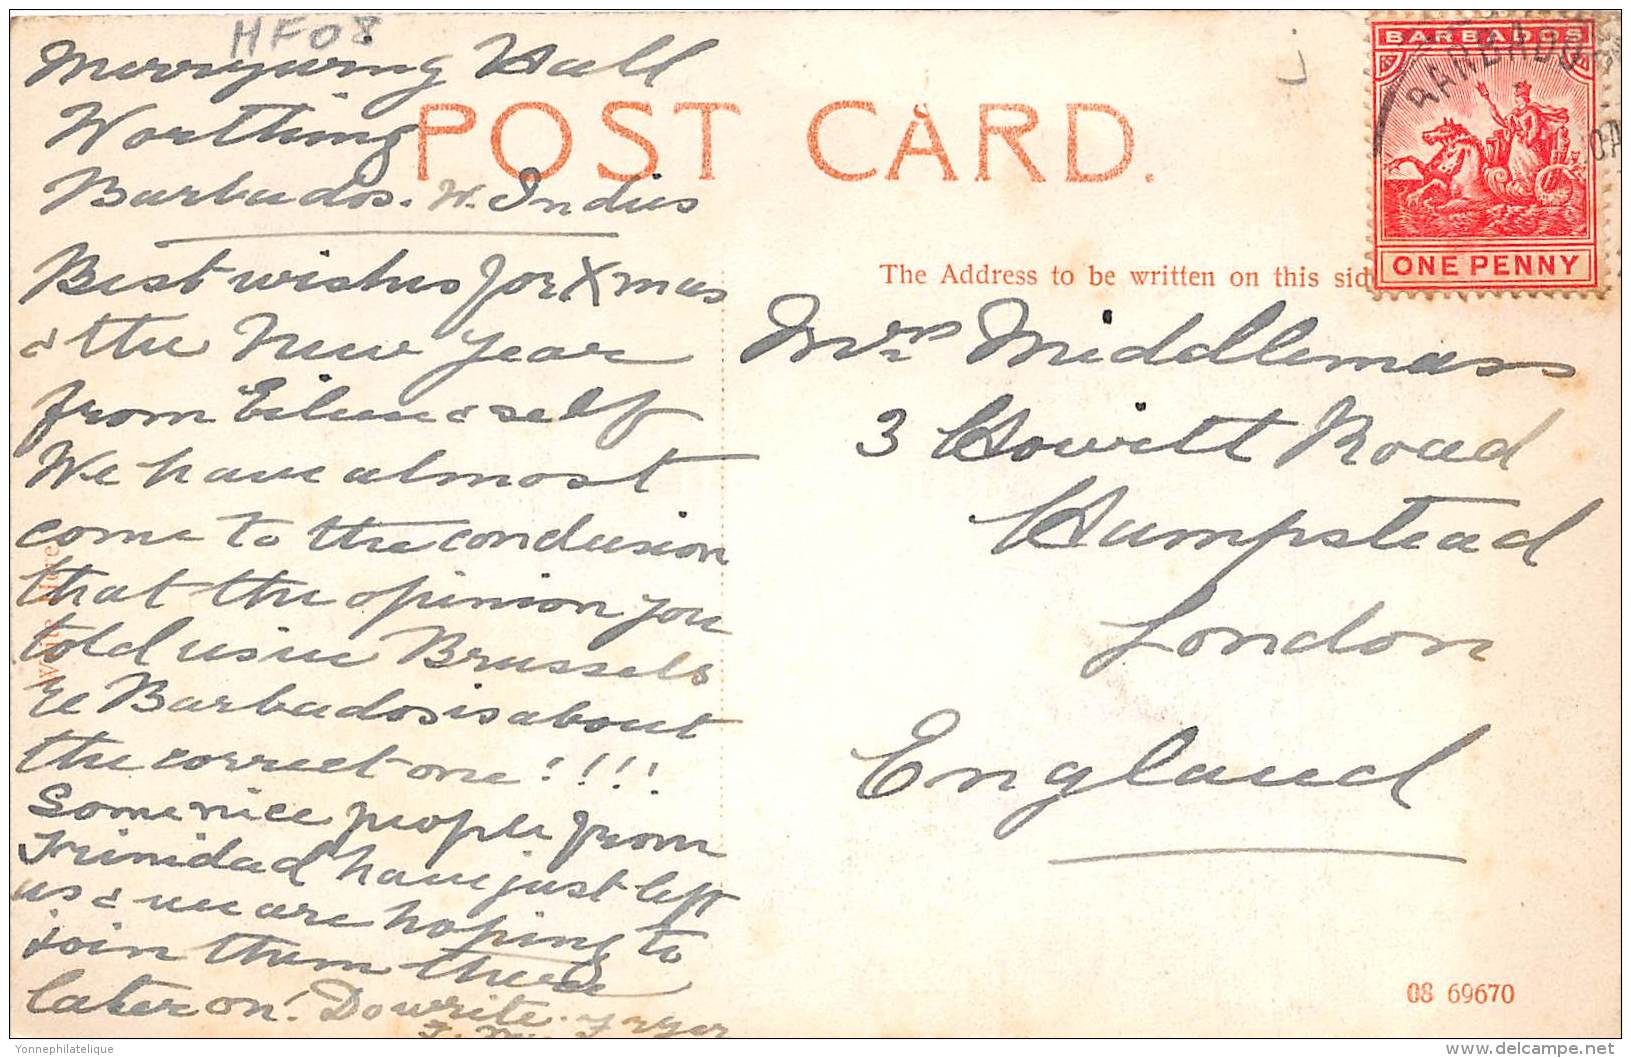 HF08
Merrywing Hall
Worthing
Barbados. W. Indies
Best wishes for Xmas
& the New Year
from Eileen & self
We have almost
come to the conclusion
that the opinion you
told us in Brussels
re Barbados is about
the correct one!!!!
Some nice people from
Trinidad have just left
us & we are hoping to
join them there
later on! Do write.
Write Here
POST CARD.
The Address to be written on this sid
BARBADOS
ONE PENNY
BARBADOS
Mrs Middlemass
3 Howitt Road
Hampstead
London
England
08 69670
Yonnephilatelique